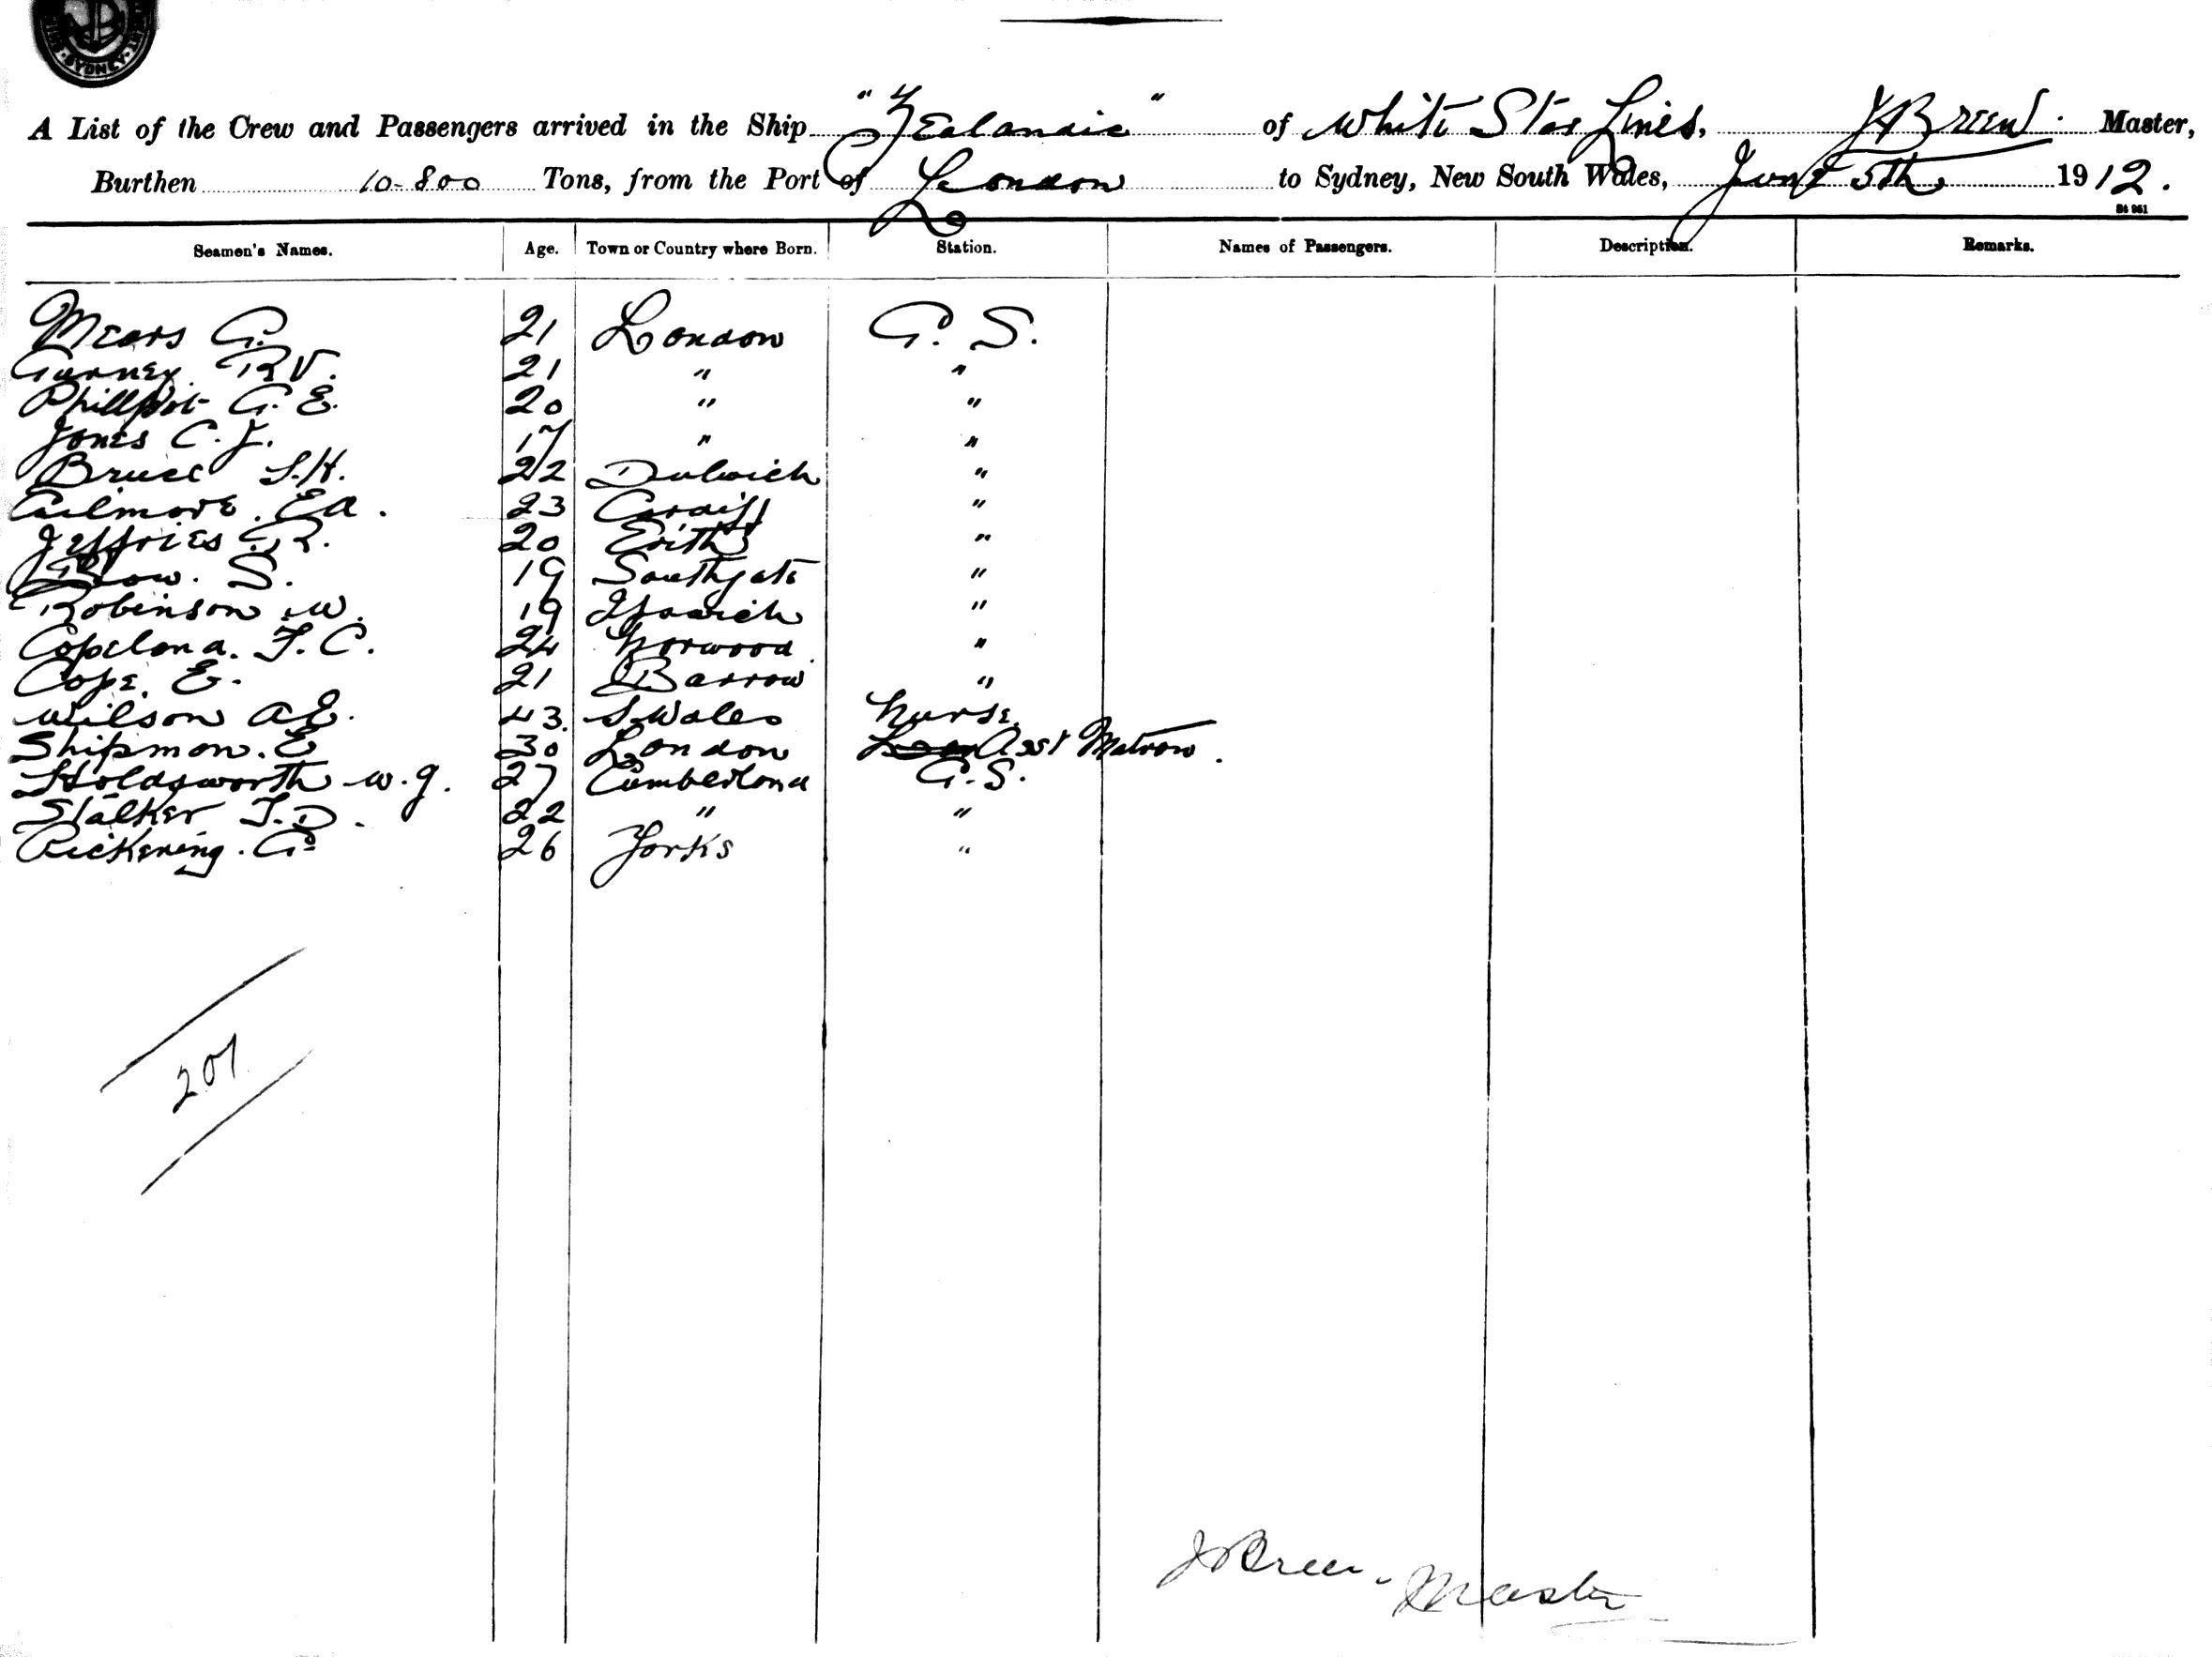 SYDNEY
A List of the Crew and Passengers arrived in the Ship "Zealandic" of White Star Lines, J Breen. Master,
Burthen 10-800 Tons, from the Port of London to Sydney, New South Wales, June 5th 1912.
Seamen's Names. Age. Town or Country where Born. Station. Names of Passengers. Description. Remarks.
Mears G. 21 London G. S.
Gurney R V. 21 " "
Phillpot G. E. 20 " "
Jones C. J. 17 " "
Bruce S. H. 22 Dulwich "
Gilmore. E A. 23 Cardiff "
Jeffries R. 20 Erith "
S. 19 Southgate "
Robinson W. 19 Ipswich "
Copeland. F. C. 24 Norwood "
Cope. E. 21 Barrow "
Wilson A E. 43. S Wales Nurse.
Shipman. E 30 London Asst Matron.
Holdsworth W. J. 27 Cumberland G. S.
Stalker T. D. 22 " "
Pickering. G 26 Yorks "
201
J Breen - Master